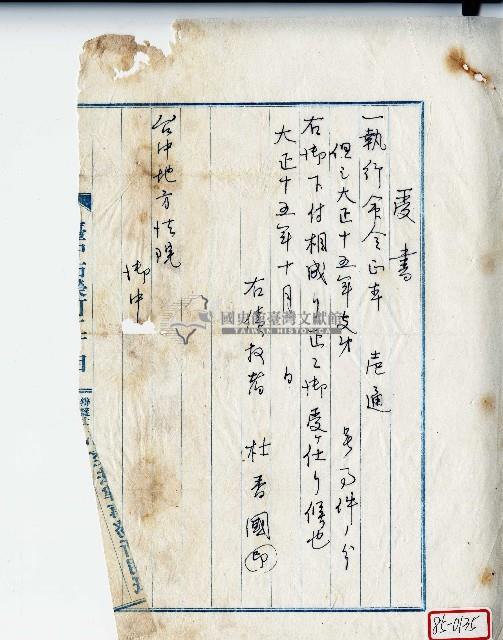 受書
一執行命令正本 壱通
但シ大正十五年支 号事件ノ分
右御下付相成リ正ニ御受ケ仕リ候也
大正十五年十月 日
右債权者 杜香國 印
台中地方法院
御中
國史館臺灣文獻館
TAIWAN HISTORICA
85-0135